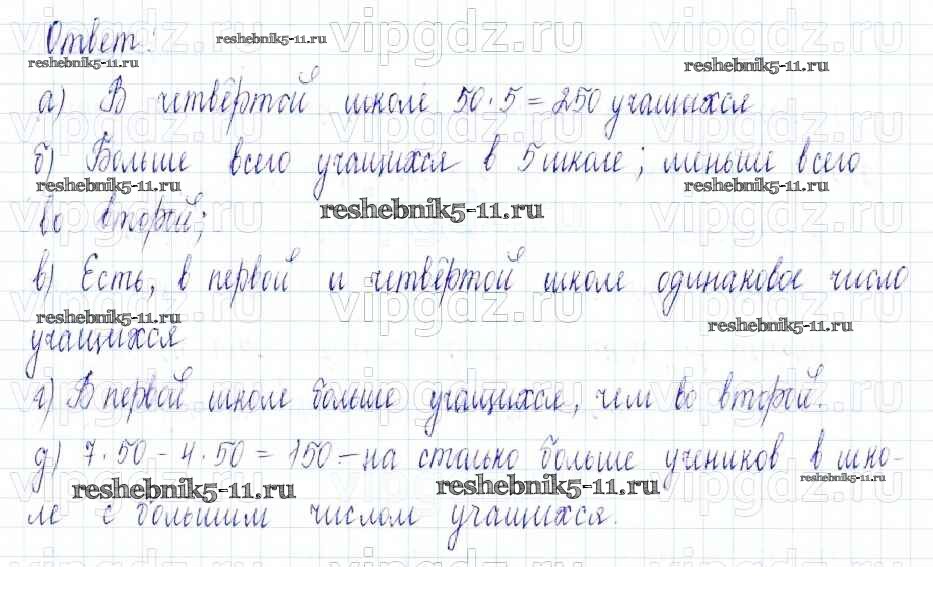 Ответ:
а) В четвёртой школе 50·5=250 учащихся
б) Больше всего учащихся в 5 школе; меньше всего
во второй;
в) Есть, в первой и четвёртой школе одинаковое число
учащихся
г) В первой школе больше учащихся, чем во второй.
д) 7·50 - 4·50 = 150 - на столько больше учеников в шко-
ле с большим числом учащихся.
vipgdz.ru
reshebnik5-11.ru